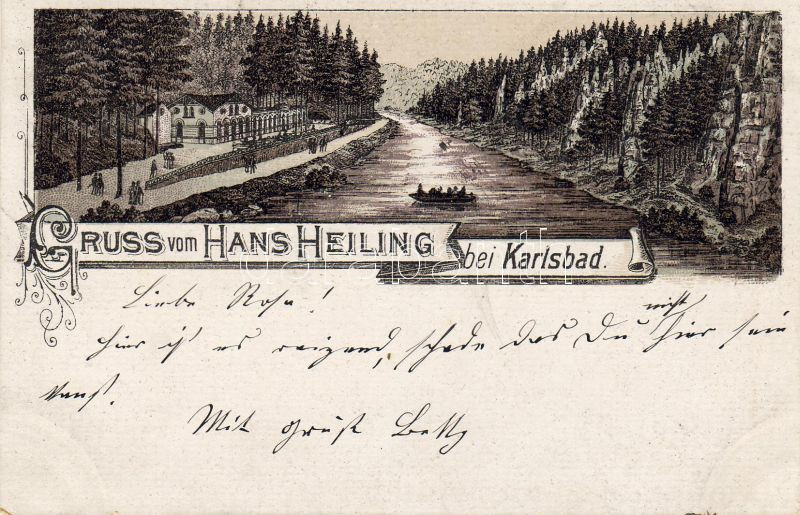 GRUSS vom HANS HEILING
bei Karlsbad.
Liebe Rosa!
nicht
hier ist es reizend, schade das Du hier sein
kanst.
Mit Gruß Betty